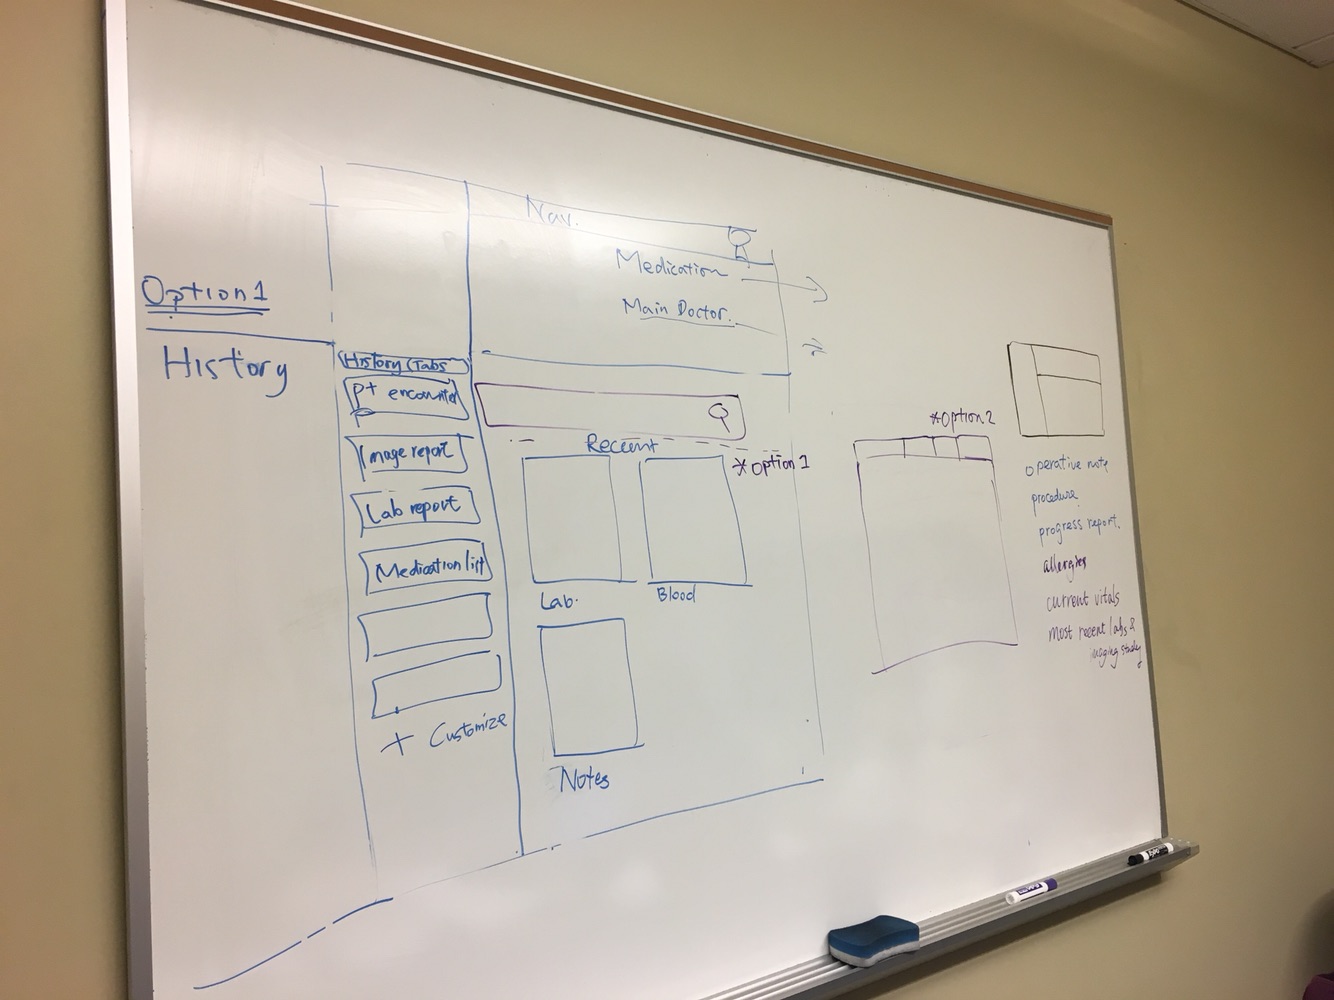 Nav.
Medication
Main Doctor.
Option 1
History
History (Tabs
pt encounter
Image report
Lab report
Medication list
+ Customize
Receent
* Option 1
Lab.
Blood
Notes
* Option 2
operative note
procedure
progress report.
allergies
current vitals
most recent labs &
imaging study